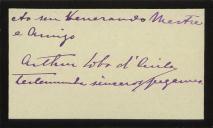 Ao seu Venerando Mestre
e Amigo
Arthur Lobo d'Avila
testemunha sinceros pezames